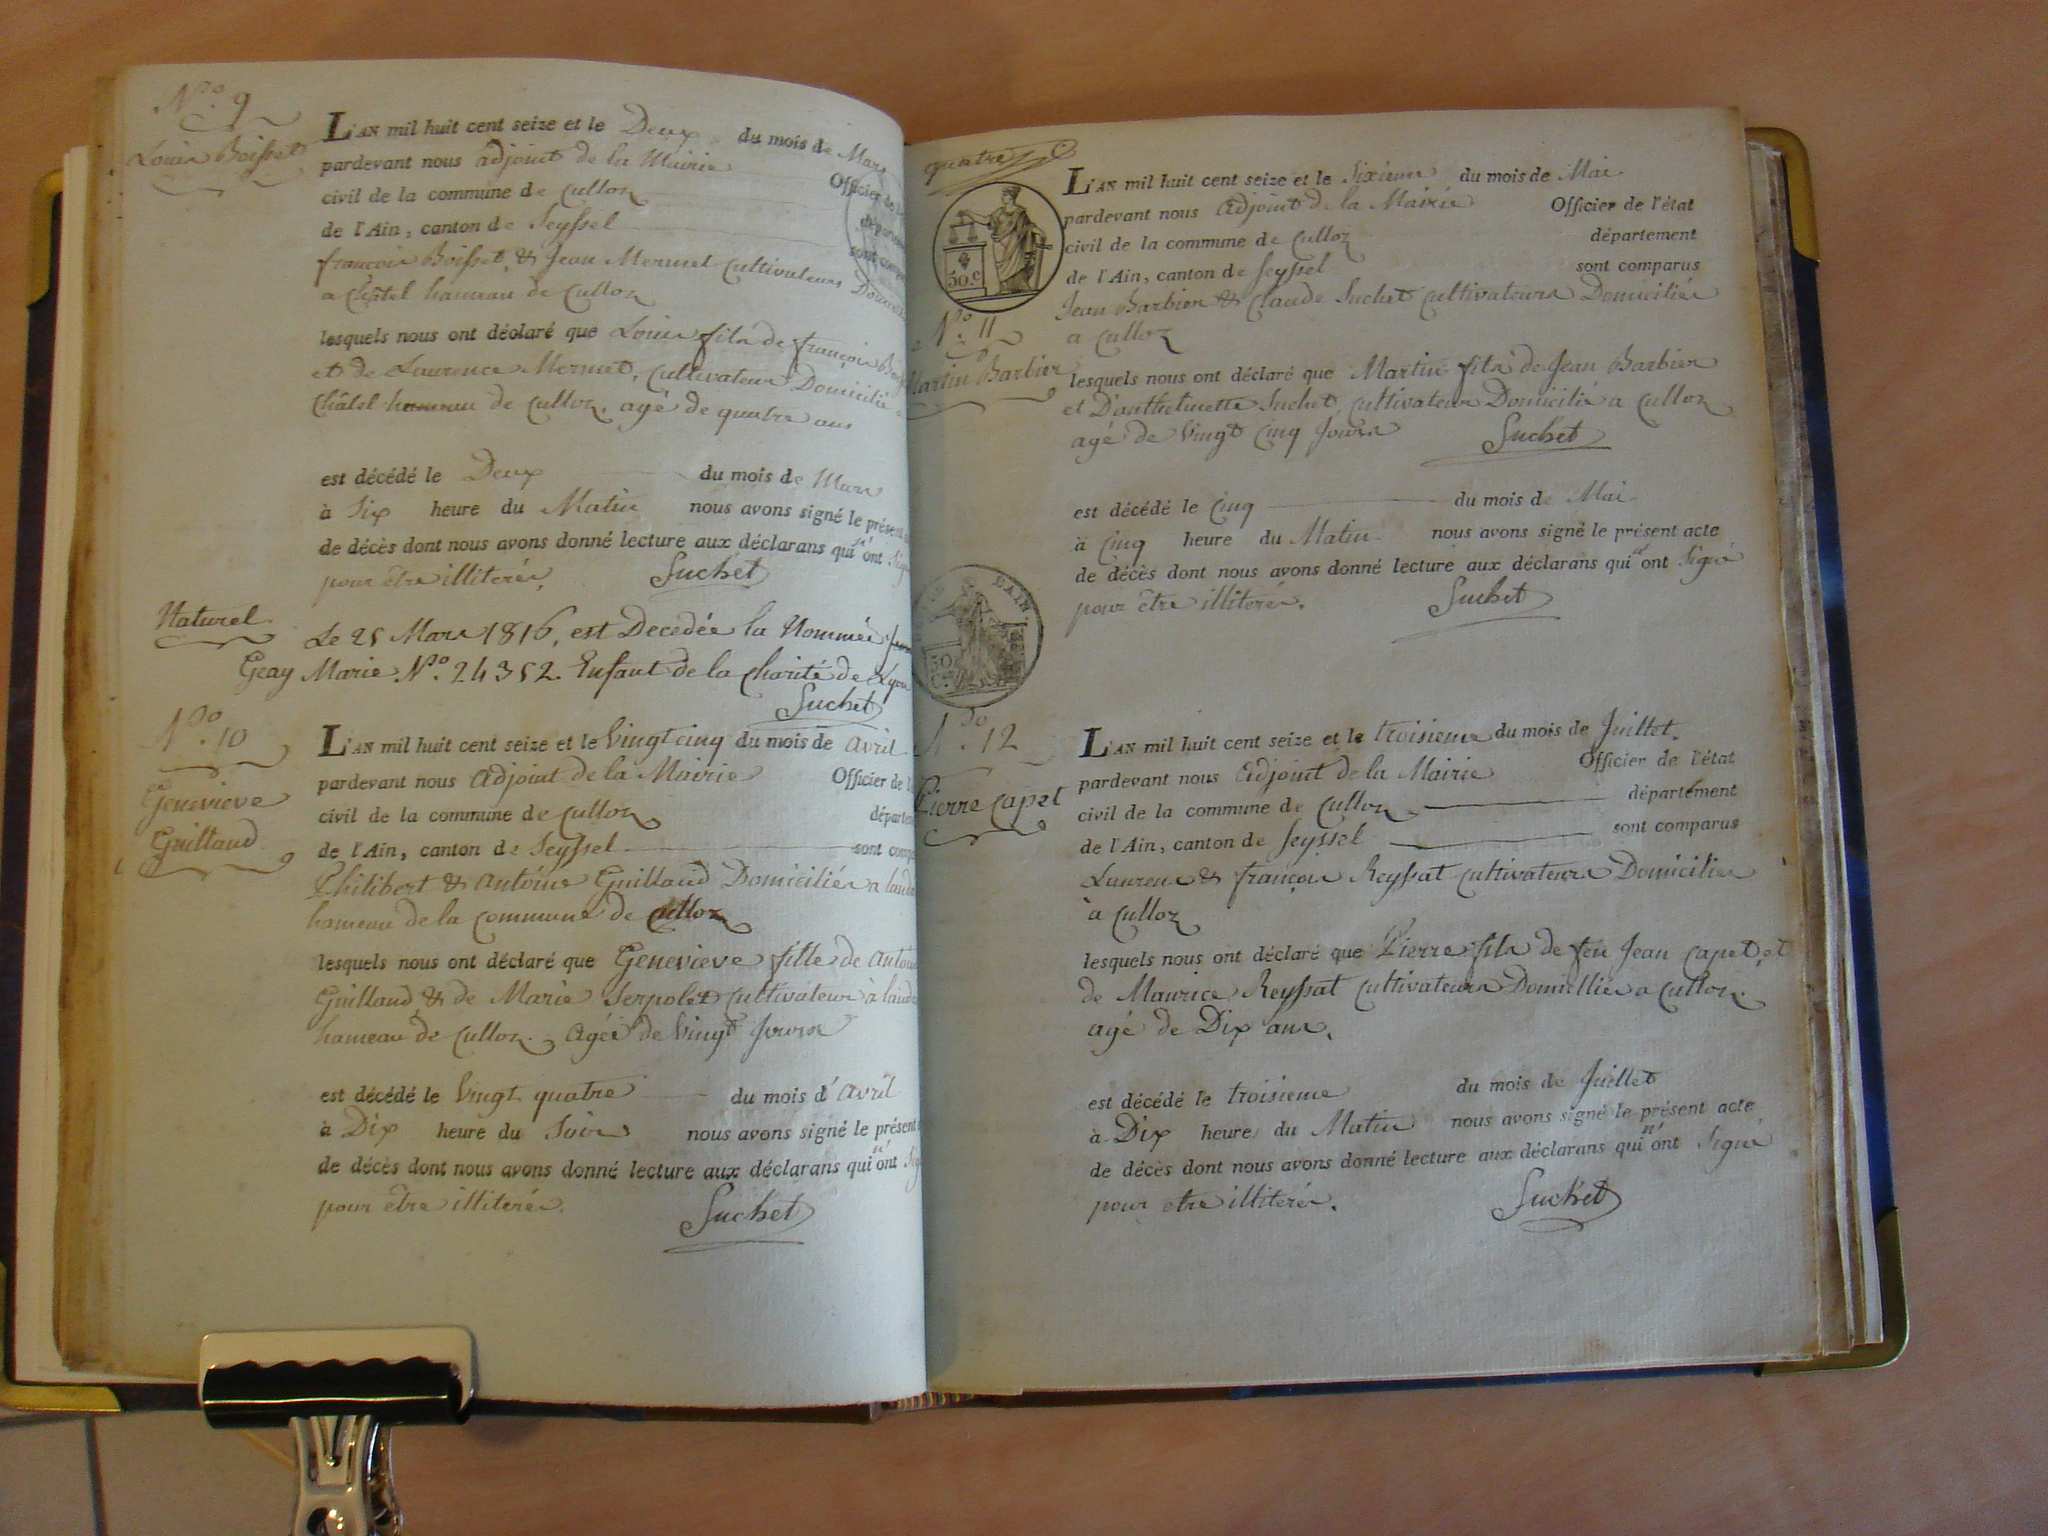 Nro. 9
Louis Boisset
L'AN mil huit cent seize et le Deux du mois de Mars
pardevant nous adjoint de la Mairie Officier de l'é
civil de la commune de Culloz départem
de l'Ain, canton de Seyssel sont compar
françois Boisset, & Jean Mermet cultivateurs Domici
a Chatel hameau de Culloz
lesquels nous ont déclaré que Louis fils de françois Boiss
et de Laurence Mermet, cultivateurs Domicilié a
Châtel hameau de Culloz, agé de quatre ans
est décédé le Deux du mois de Mars
à Six heure du Matin nous avons signé le présent
de décès dont nous avons donné lecture aux déclarans qui n'ont Sig
pour être illiterés,
Suchet
Naturel
Le 25 Mars 1816, est Decedée la Nommée
Geay Marie No. 24352. Enfant de la Charité de Lyon
Suchet
Nro. 10
Genevieve
Guilland
L'AN mil huit cent seize et le Vingt cinq du mois de avril
pardevant nous adjoint de la Mairie Officier de l'
civil de la commune de Culloz départem
de l'Ain, canton de Seyssel sont compa
Philibert & Antoine Guilland Domiciliés a
hameau de la commune de Culloz
lesquels nous ont déclaré que Genevieve fille de Antoin
Guilland & de Marie Serpolet cultivateurs à
hameau de Culloz. Agée de Vingt Jours
est décédé le Vingt quatre du mois d'avril
à Dix heure du Soir nous avons signé le présent
de décès dont nous avons donné lecture aux déclarans qui n'ont Sig
pour être illiterés.
Suchet
quatre
50.c
Nro. 11
Martin Barbier
L'AN mil huit cent seize et le Sixieme du mois de Mai
pardevant nous Adjoint de la Mairie Officier de l'état
civil de la commune de Culloz département
de l'Ain, canton de Seyssel sont comparus
Jean Barbier & Claude Suchet cultivateurs Domiciliés
a Culloz
lesquels nous ont déclaré que Martin fils de Jean Barbier
et D'anthelmette Suchet, cultivateurs Domicilié a Culloz
agé de Vingt Cinq Jours Suchet
est décédé le Cinq du mois de Mai
à Cinq heure du Matin nous avons signé le présent acte
de décès dont nous avons donné lecture aux déclarans qui n'ont Signé
pour être illiterés.
Suchet
L'AIN
Nro. 12
Pierre Capet
L'AN mil huit cent seize et le troisieme du mois de Juillet.
pardevant nous Adjoint de la Mairie Officier de l'état
civil de la commune de Culloz département
de l'Ain, canton de Seyssel sont comparus
Laurent & françois Reyssat cultivateurs Domiciliés
à Culloz
lesquels nous ont déclaré que Pierre fils de feu Jean Capet, et
de Maurice Reyssat cultivateurs Domicilliés a Culloz.
agé de Dix ans,
est décédé le troisieme du mois de Juillet
à Dix heure du Matin nous avons signé le présent acte
de décès dont nous avons donné lecture aux déclarans qui n'ont Signé
pour etre illiterés.
Suchet